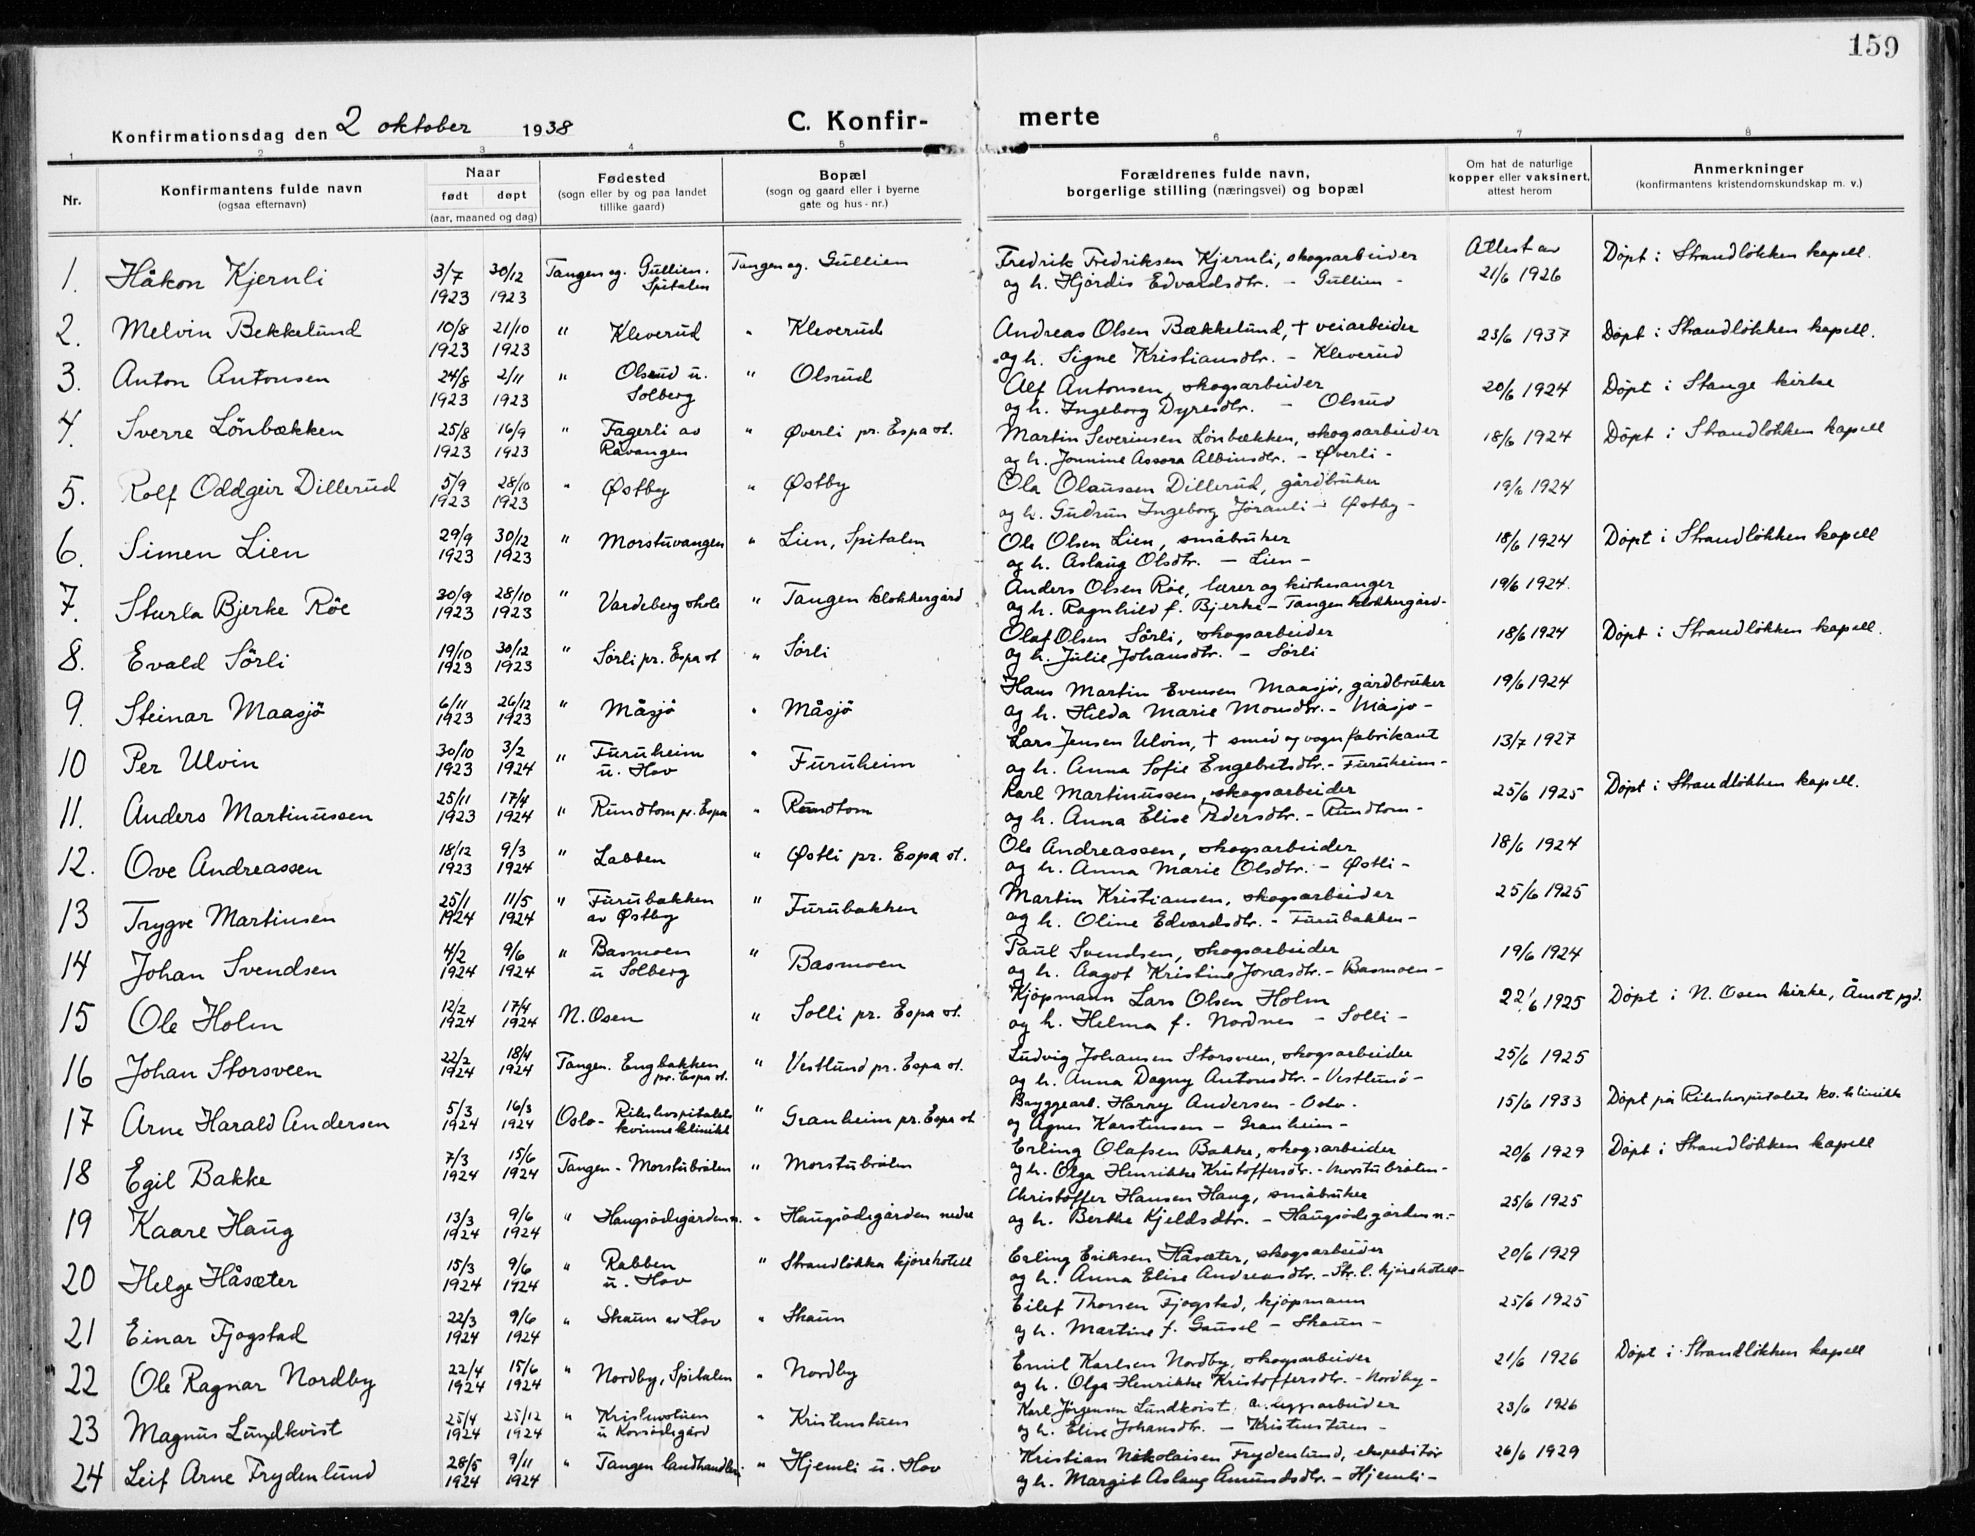 159
Konfirmationsdag den 2 oktober 1938 C. Konfir- merte
1 2 3 4 5 6 7 8
Nr. Konfirmantens fulde navn (ogsaa efternavn) Naar født døpt (aar, maaned og dag) Fødested (sogn eller by og paa landet tillike gaard) Bopæl (sogn og gaard eller i byerne gate og hus-nr.) Forældrenes fulde navn, borgerlige stilling (næringsvei) og bopæl Om hat de naturlige kopper eller vaksinert, attest herom Anmerkninger (konfirmantens kristendomskundskap m. v.)
1. Håkon Kjernli 3/7 1923 30/12 1923 Tangen og. Gullien. Spitalen Tangen og. Gullien Fredrik Fredriksen Kjernli, skogsarbeider Attest av Døpt i Strandløkken kapell.
og h. Hjørdis Edvardsdtr. – Gullien – 21/6 1926
2. Melvin Bekkelund 10/8 1923 21/10 1923 " Kleverud " Kleverud Andreas Olsen Bækkelund, † veiarbeider 23/6 1937 Døpt i Strandløkken kapell.
og h. Signe Kristiansdtr. – Kleverud
3. Anton Antonsen 24/8 1923 2/11 1923 " Olsrud u. Solberg " Olsrud Alf Antonsen, skogsarbeider 20/6 1924 Døpt i Stange kirke
og h. Ingeborg Dyresdtr. – Olsrud
4. Sverre Lönbækken 25/8 1923 16/9 1923 " Fagerli av Råvangen " Øverli pr. Espa st. Martin Severinsen Lönbækken, skogsarbeider 18/6 1924 Döpt i Strandløkken kapell
og h. Jonnine Assora Albinsdtr. – Øverli –
5. Rolf Oddgeir Dillerud 5/9 1923 28/10 1923 " Østby " Østby Ola Olaussen Dillerud, gårdbruker 19/6 1924
og h. Gudrun Ingeborg Jöranli – Østby –
6. Simen Lien 29/9 1923 30/12 1923 " Morstuvangen " Lien, Spitalen Ole Olsen Lien, småbruker 18/6 1924 Døpt i Strandløkken kapell
og h. Aslaug Olsdtr. – Lien –
7. Sturla Bjerke Röe 30/9 1923 28/10 1923 " Vardeberg skole " Tangen klokkergård Anders Olsen Röe, lærer og kirkesanger 19/6 1924.
og h. Ragnhild f. Bjerke – Tangen klokkergård –
8. Evald Sörli 19/10 1923 30/12 1923 " Sörli pr. Espa st " Sörli Olaf Olsen Sörli, skogsarbeider 18/6 1924 Døpt i Strandløkken kapell.
og h. Julie Johansdtr. – Sörli
9. Steinar Maasjö 6/11 1923 26/12 1923 " Måsjö " Måsjö Hans Martin Evensen Maasjö, gårdbruker 19/6 1924
og h. Hilda Marie Monsdtr. – Måsjö –
10 Per Ulvin 30/10 1923 3/2 1924 " Furuheim u. Hov " Furuheim Lars Jensen Ulvin, † smed og vognfabrikant 13/7 1927
og h. Anna Sofie Engebretsdtr. – Furuheim –
11. Anders Martinussen 25/11 1923 17/4 1924 " Rundtom pr. Espa " Rundtom Karl Martinussen, skogsarbeider 25/6 1925 Døpt i Strandløkken kapell.
og h. Anna Elise Pedersdtr. – Rundtom –
12. Ove Andreassen 18/12 1923 9/3 1924 " Labben " Østli pr. Espa st. Ole Andreassen, skogsarbeider 18/6 1924
og h. Anna Marie Olsdtr. – Østli –
13 Trygve Martinsen 25/1 1924 11/5 1924 " Furubakken av Østby " Furubakken Martin Kristiansen, skogsarbeider 25/6 1925
og h. Oline Edvardsdtr. – Furubakken –
14 Johan Svendsen 4/2 1924 9/6 1924 " Basmoen u Solberg " Basmoen Paul Svendsen, skogsarbeider 19/6 1924
og h. Aagot Kristine Jonasdtr. – Basmoen –
15 Ole Holm 12/2 1924 17/4 1924 N. Osen " Solli pr. Espa st. Kjøpmann Lars Olsen Holm 22/6 1925 Døpt i N. Osen kirke, Åmot pgd.
og h. Helma f. Nordnes – Solli –
16 Johan Storsveen 22/2 1924 18/4 1924 Tangen. Engbakken pr. Espa st. " Vestlund pr. Espa st. Ludvig Johansen Storsveen, skogsarbeider 25/6 1925
og h. Anna Dagny Antonsdtr. – Vestlund –
17 Arne Harald Andersen 5/3 1924 16/3 1924 Oslo – Rikshospitalets kvinneklinikk " Granheim pr. Espa st Bryggearb. Harry Andersen – Oslo. 15/6 1933 Døpt på Rikshospitalets kv. klinikk
og Agnes Karstensen – Granheim –
18 Egil Bakke 7/3 1924 15/6 1924 Tangen – Morstubråten " Morstubråten Erling Olafsen Bakke, skogsarbeider 20/6 1929 Døpt i Strandløkken kapell
og h. Olga Henrikke Kristoffersdtr. – Morstubråten –
19 Kaare Haug 13/3 1924 9/6 1924 " Haugsödegården n. " Haugsödegården nedre Christoffer Hansen Haug, småbruker 25/6 1925
og h. Berthe Kjeldsdtr. – Haugsödegården n. –
20 Helge Håsæter 15/3 1924 9/6 1924 " Rabben u. Hov " Strandløkka kjørehotell Erling Eriksen Håsæter, skogsarbeider 20/6 1929
og h. Anna Elise Andreasdtr. – Str. l. kjørehotell –
21 Einar Fjogstad 22/3 1924 9/6 1924 " Skaun av Hov " Skaun Eilef Thorsen Fjogstad, kjøpmann 25/6 1925
og h. Martine f. Gausel – Skaun –
22 Ole Ragnar Nordby 22/4 1924 15/6 1924 " Nordby, Spitalen " Nordby Emil Karlsen Nordby, skogsarbeider 21/6 1926 Døpt i Strandløkken kapell
og h. Olga Henrikke Kristoffersdtr. – Nordby –
23 Magnus Lundkvist 25/4 1924 25/12 1924 " Kristenstuen u Korsödegård " Kristenstuen Karl Jørgensen Lundkvist, anleggsarbeider 23/6 1926
og h. Elise Johansdtr. – Kristenstuen –
24 Leif Arne Frydenlund 28/5 1924 9/11 1924 " Tangen landhandleri " Hjemli u. Hov Kristian Nikolaisen Frydenlund, ekspeditør 26/6 1929
og h. Margit Aslaug Amundsdtr. – Hjemli –